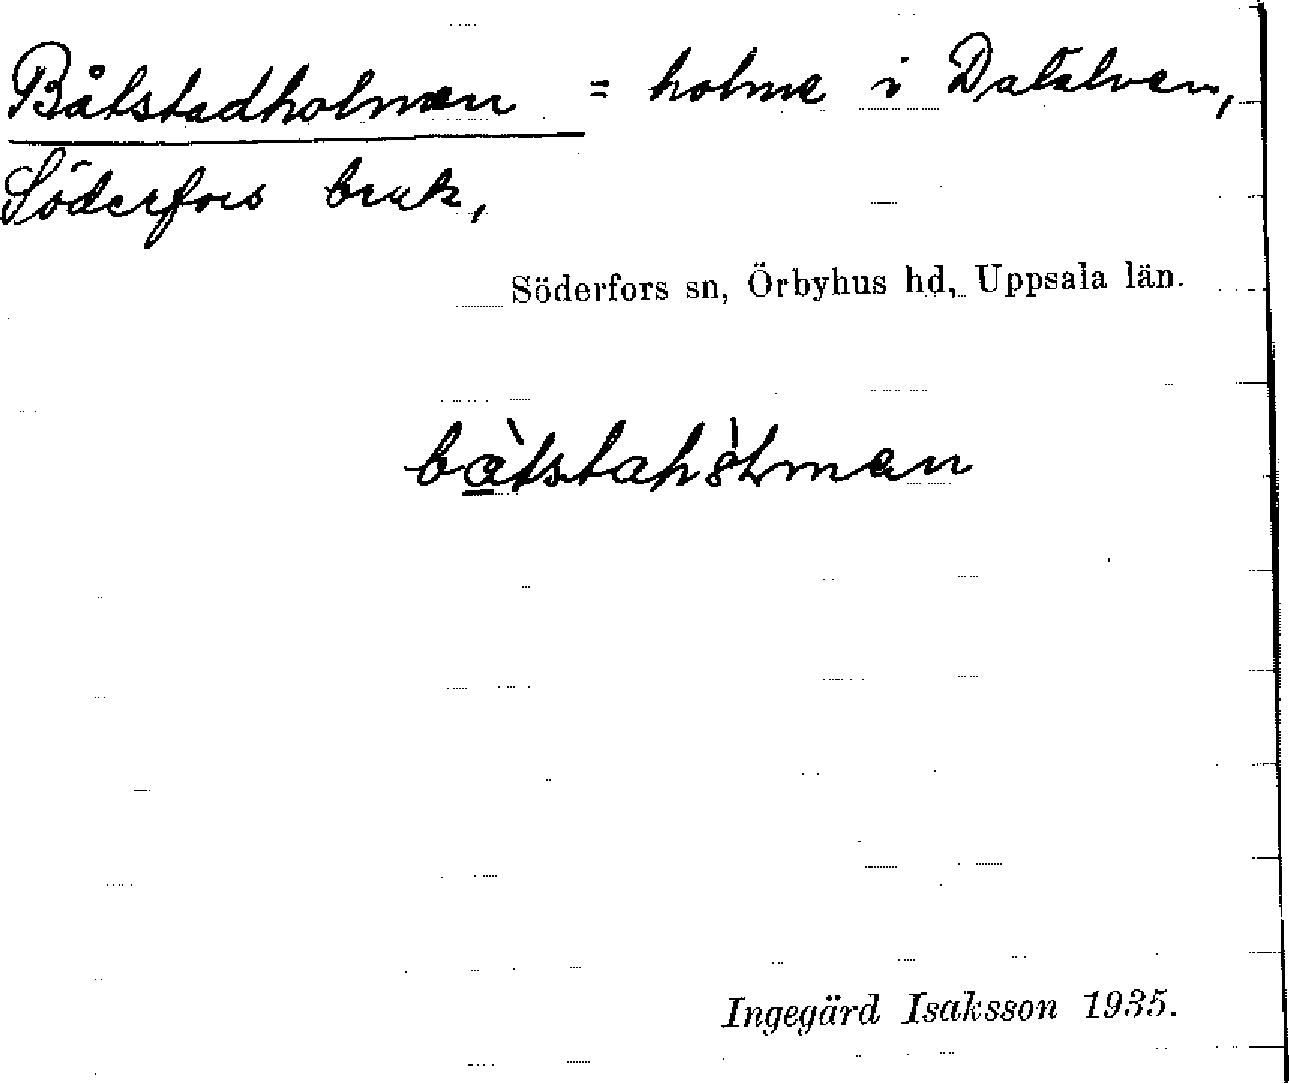 Båtstadholmen = holme i Dalälven,
Söderfors bruk,
Söderfors sn, Örbyhus hd, Uppsala län.
Ingegärd Isaksson 1935.